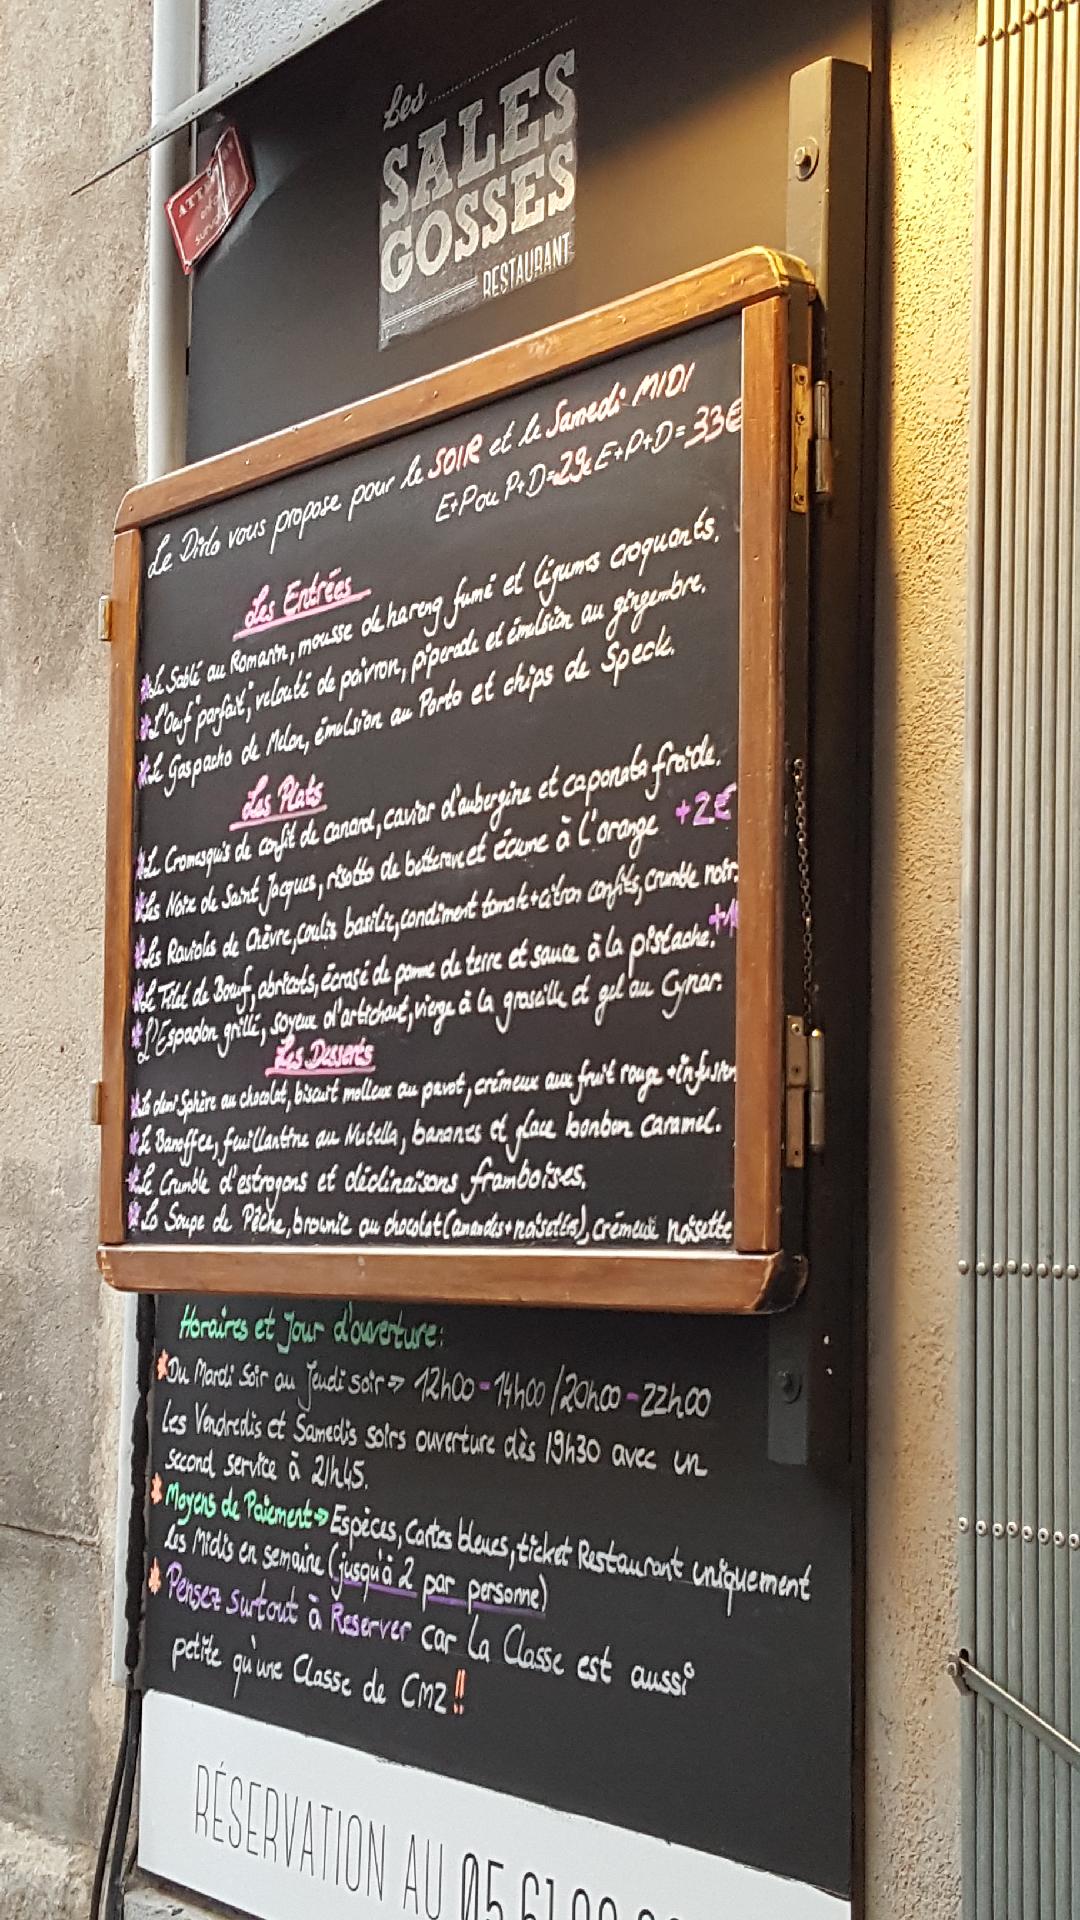 Les
SALES
GOSSES
RESTAURANT
Le Dirlo vous propose pour le SOIR et le Samedi MIDI
E+P ou P+D=29€ E+P+D=33€
Les Entrées
Le Sablé au Romarin, mousse de hareng fumé et légumes croquants.
L'Oeuf "parfait", velouté de poivron, piperade et émulsion au gingembre.
Le Gaspacho de Melon, émulsion au Porto et chips de Speck.
Les Plats
Le Cromesquis de confit de canard, caviar d'aubergine et caponata froide.
Les Noix de Saint Jacques, risotto de betterave et écume à l'orange +2€
Les Ravioles de Chèvre, coulis basilic, condiment tomate+citron confits, crumble noir.
Le Filet de Boeuf, abricots, écrasé de pomme de terre et sauce à la pistache.
L'Espadon grillé, soyeux d'artichaut, vierge à la groseille et gel au Cynar.
Les Desserts
La demi Sphère au chocolat, biscuit moelleux au pavot, crémeux aux fruit rouge + infusion
Le Banoffee, feuillantine au Nutella, bananes et glace bonbon caramel.
Le Crumble d'estragons et déclinaisons framboises.
La Soupe de Pêche, brownie au chocolat (amandes+noisettes), crémeux noisette
Horaires et Jour d'ouverture:
Du Mardi Soir au Jeudi soir => 12h00-14h00/20h00-22h00
Les Vendredis et Samedis soirs ouverture dès 19h30 avec un
second service à 21h45.
Moyens de Paiement => Espèces, Cartes bleues, ticket Restaurant uniquement
les Midis en semaine (jusqu'à 2 par personne)
Pensez surtout à Reserver car La Classe est aussi
petite qu'une Classe de CM2 !!
RÉSERVATION AU 05 61